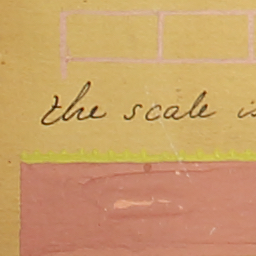 the scale